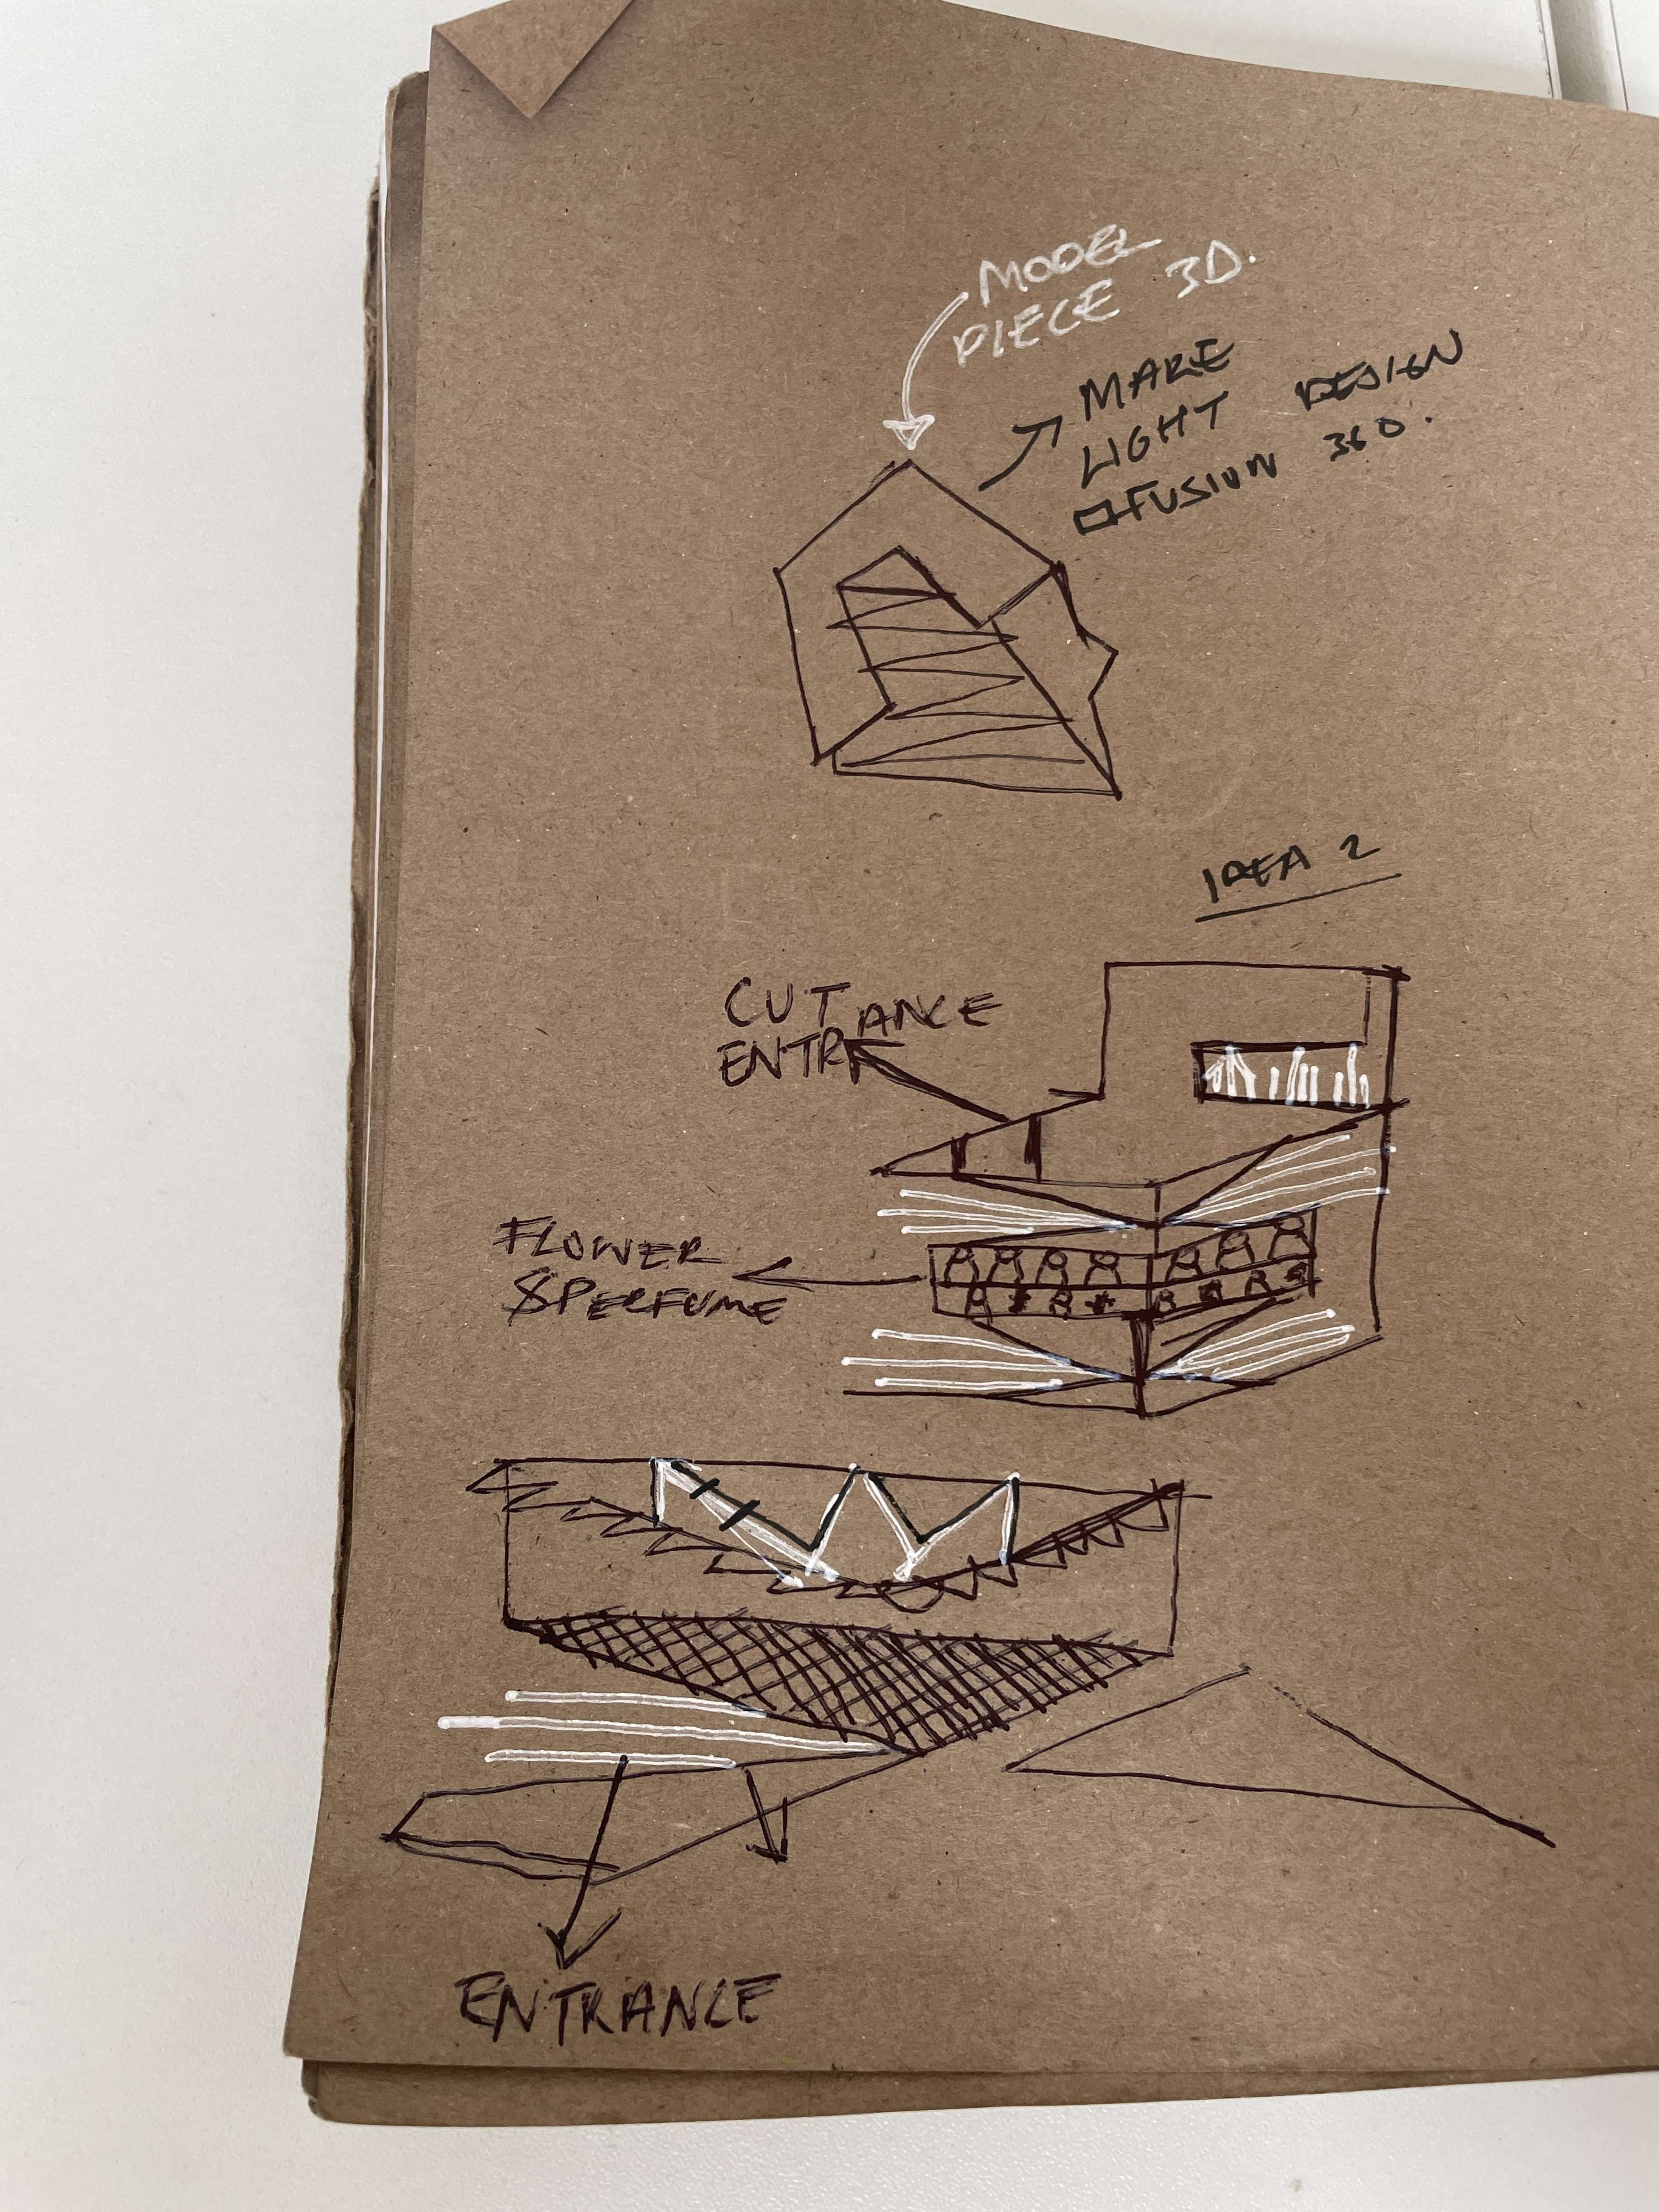 MODEL
PIECE 3D.
MAKE
LIGHT DESIGN
FUSION 360.
IDEA 2
CUT
ENTRANCE
FLOWER
&PERFUME
ENTRANCE